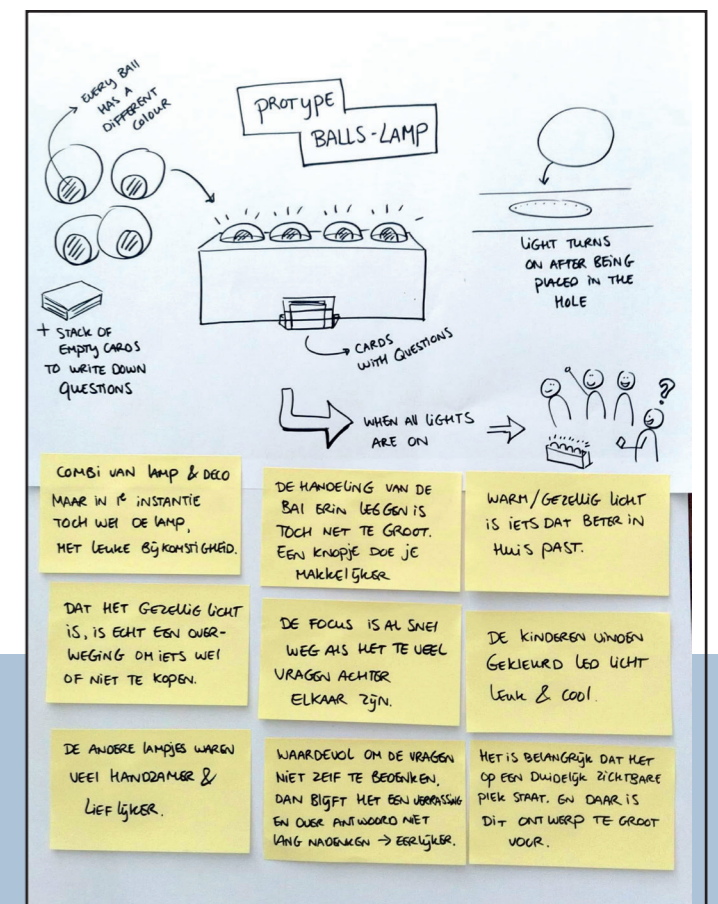 EVERY BALL
HAS A
DIFFERENT
COLOUR
PROTYPE
BALLS-LAMP
LIGHT TURNS
ON AFTER BEING
PLACED IN THE
HOLE
+ STACK OF
EMPTY CARDS
TO WRITE DOWN
QUESTIONS
CARDS
WITH QUESTIONS
WHEN All LIGHTS
ARE ON
?
COMBI VAN LAMP & DECO
MAAR IN 1e INSTANTIE
TOCH WEl DE LAMP,
MET LEUKE BIJKOMSTIGHEID.
DE HANDELING VAN DE
BAl ERIN LEGGEN IS
TOCH NET TE GROOT.
EEN KNOPJE DOE JE
MAKKELIJKER
WARM/GEZELLIG LICHT
IS IETS DAT BETER IN
HUIS PAST.
DAT HET GEZELLIG LICHT
IS, IS ECHT EEN OVER-
WEGING OM IETS WEl
OF NIET TE KOPEN.
DE FOCUS IS Al SNEl
WEG AlS HET TE VEEL
VRAGEN ACHTER
ELKAAR ZIJN.
DE KINDEREN VINDEN
GEKLEURD LED LICHT
LEUK & COOL.
DE ANDERE LAMPJES WAREN
VEEl HANDZAMER &
LIEFLIJKER.
WAARDEVOL OM DE VRAGEN
NIET ZElF TE BEDENKEN,
DAN BLIJFT HET EEN VERRASSING
EN OVER ANTWOORD NIET
LANG NADENKEN → EERLIJKER.
HET IS BELANGRIJK DAT HET
OP EEN DUIDELIJK ZICHTBARE
PLEK STAAT. EN DAAR IS
DIT ONTWERP TE GROOT
VOOR.